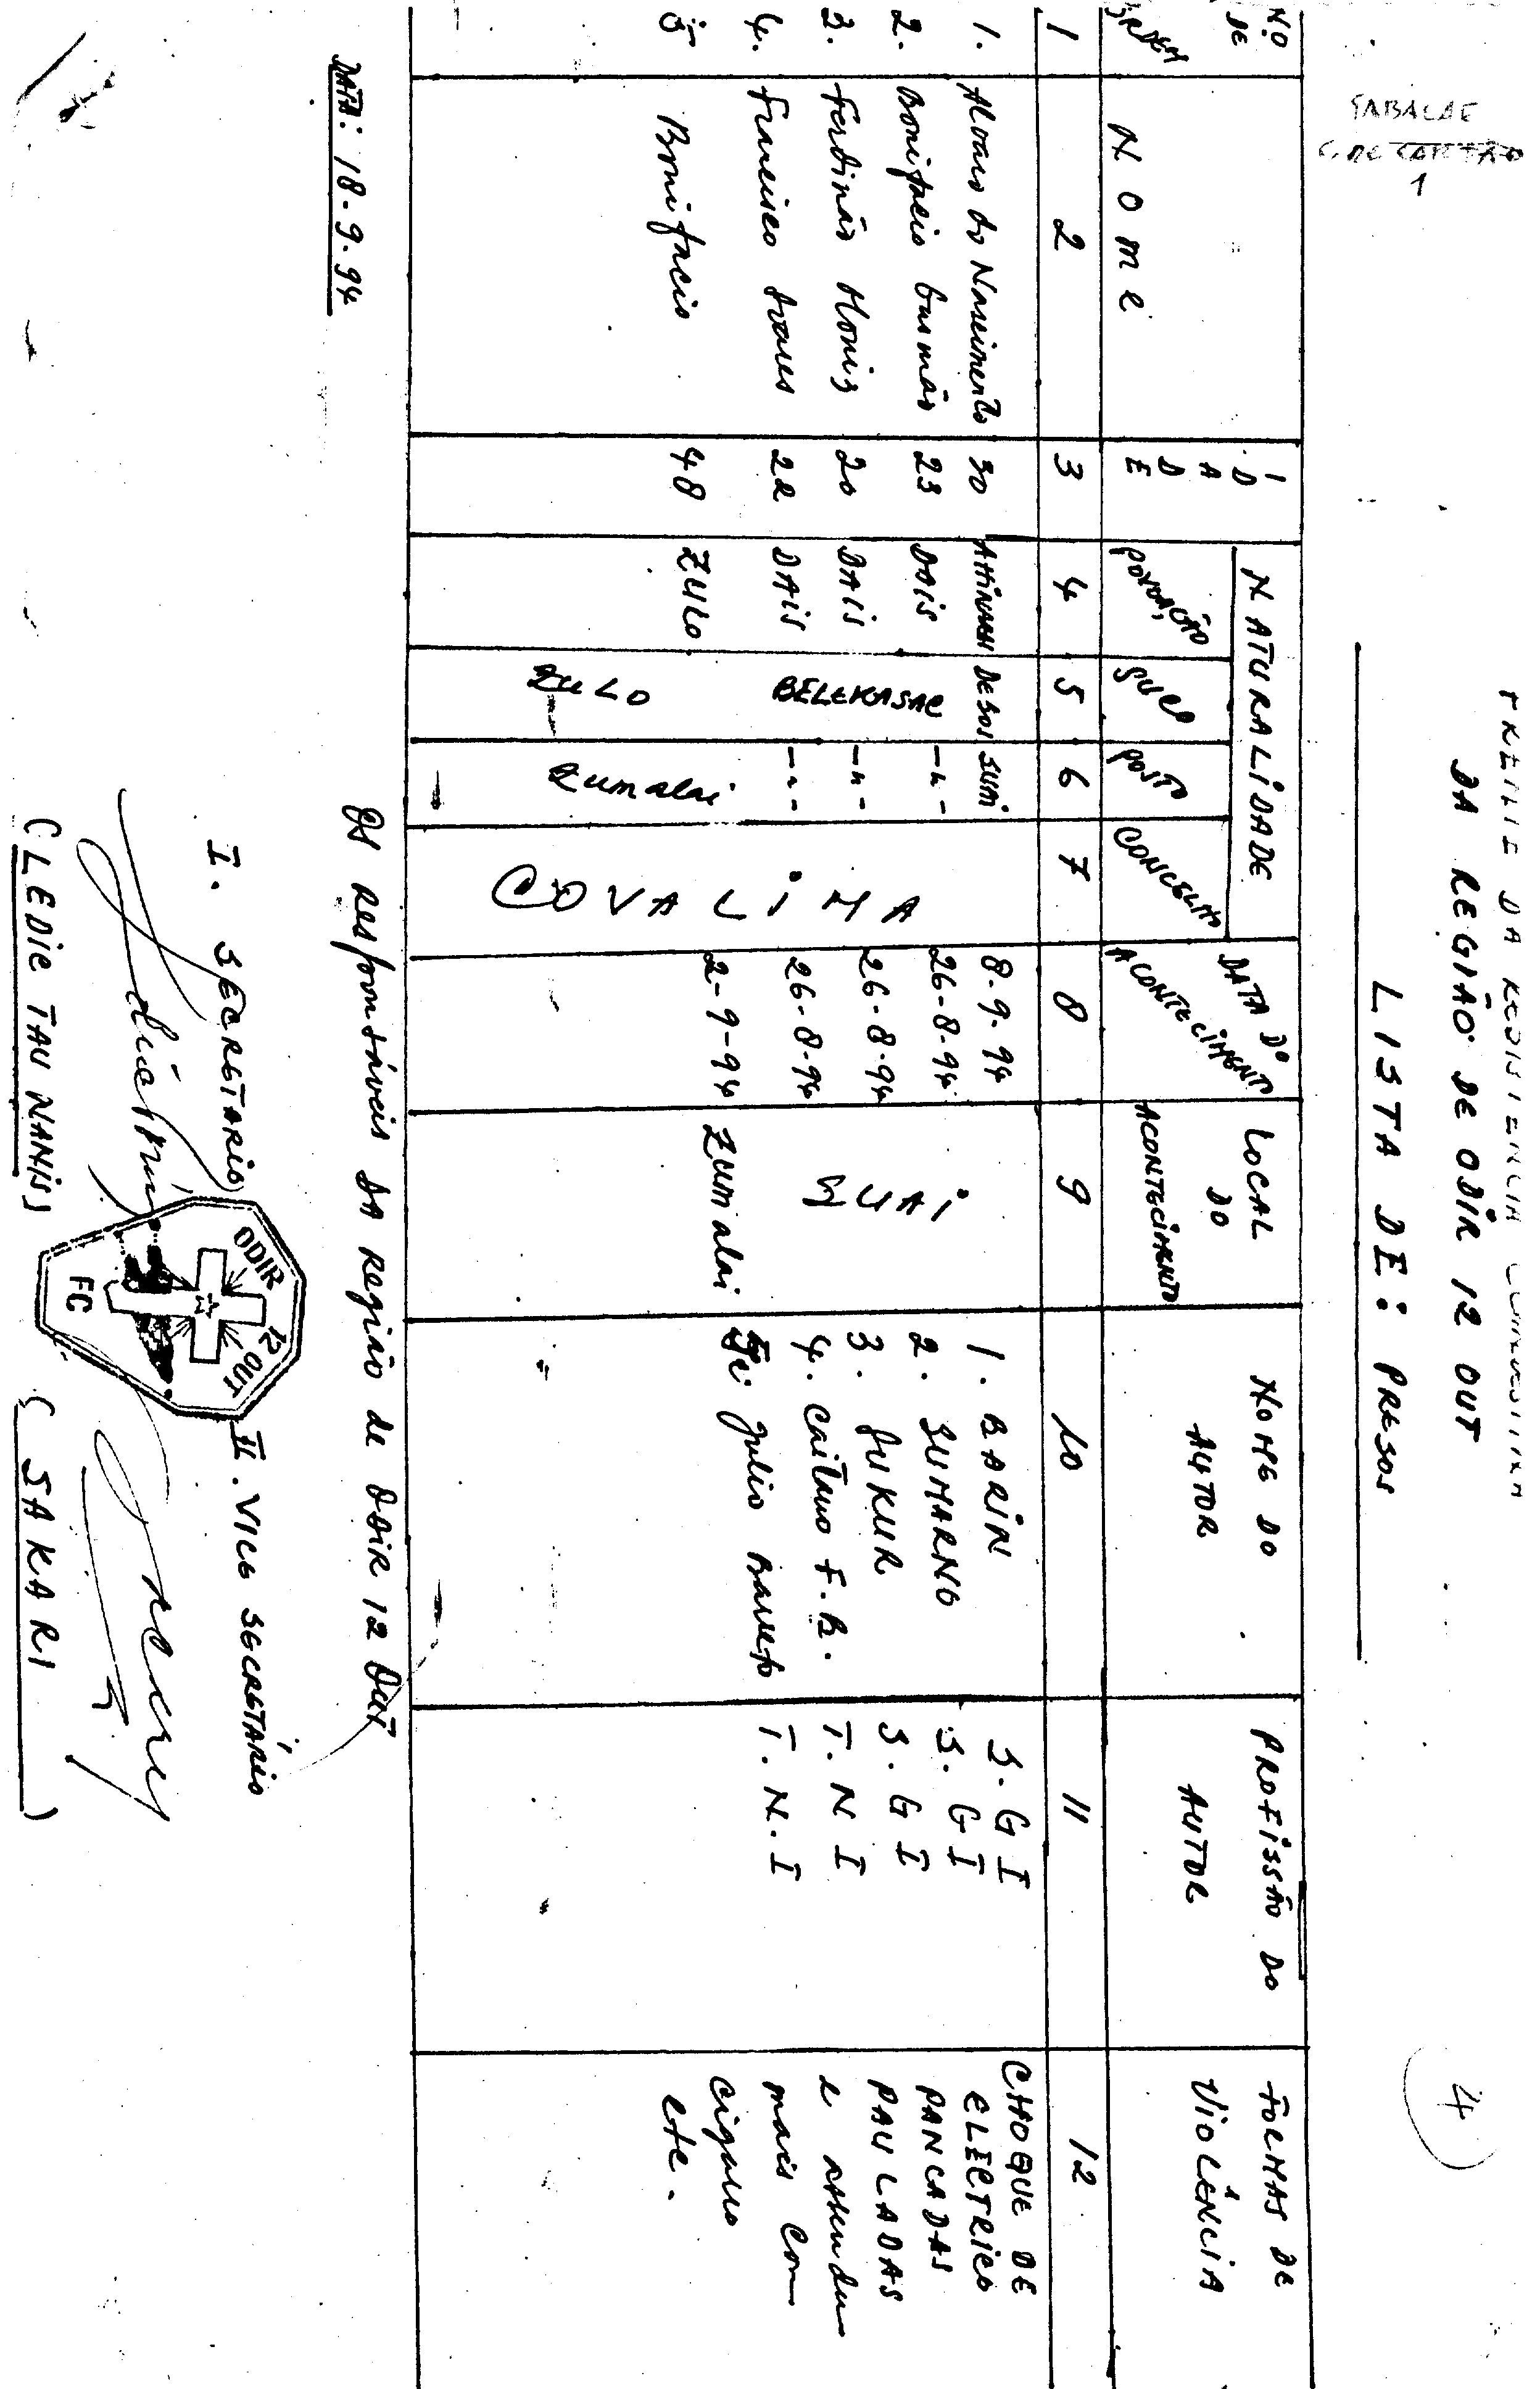 DA REGIÃO DE ODIR 12 OUT
LISTA DE: PRESOS
4
SABALAE
1
N.O DE ORDEM
Nome
IDADE
NATURALIDADE
POVOAÇÃO
SUCO
POSTO
CONCELHO
DATA DO ACONTECIMENTO
LOCAL DO ACONTECIMENTO
NOME DO AUTOR
PROFISSÃO DO AUTOR
FORMAS DE VIOLÊNCIA
1 2 3 4 5 6 7 8 9 10 11 12
1. Alvaro do Nascimento 30 DEBOS SUAI 8.9.94 1. BARIN S.GI CHOQUE DE
2. Bonifacio Gusmão 23 DAIS -"- 26-8-94 2. SUMARNO S.GI ELECTRICO
3. Ferdinão Moniz 20 DAIS BELEKASAC -"- COVALIMA 26-8-94 SUAI 3. JUKUR S.GI PANCADAS
4. Francisco Soares 22 DAIS -"- 26-8-94 4. Caitano F.B. T.NI PAULADAS
5 Bonifacio 48 ZULO ZULO Zumalai 2-9-94 Zumalai Julio Barreto T.N.I e
mais com
cigarro
etc.
Os responsáveis da região de ODIR 12 OUT
DATA: 18.9.94
I. SECRETARIO
II. VICE SECRETÁRIO
ODIR 12 OUT
FC
(LEDIE TAU NANIS)
(SAKARI)